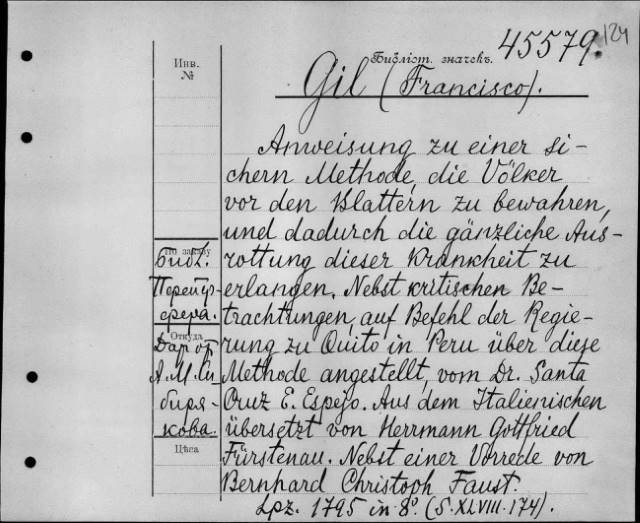 45579. 124
Инв.
№
Библіот. значекъ.
Gil (Francisco).
Anweisung zu einer si-
chern Methode, die Völker
vor den Blattern zu bewahren,
und dadurch die gänzliche Aus-
rottung dieser Krankheit zu
erlangen. Nebst kritischen Be-
trachtungen, auf Befehl der Regie-
rung zu Quito in Peru über diese
Methode angestellt, vom Dr. Santa
Cruz E. Espejo. Aus dem Italienischen
übersetzt von Herrmann Gottfried
Fürstenau. Nebst einer Vorrede von
Bernhard Christoph Faust.
Lpz. 1795 in 8º. (S. XLVIII. 174).
По заказу
Библ.
Пер
сфера.
Откуда
Даръ от
А. М. Си-
биря-
кова.
Цѣса